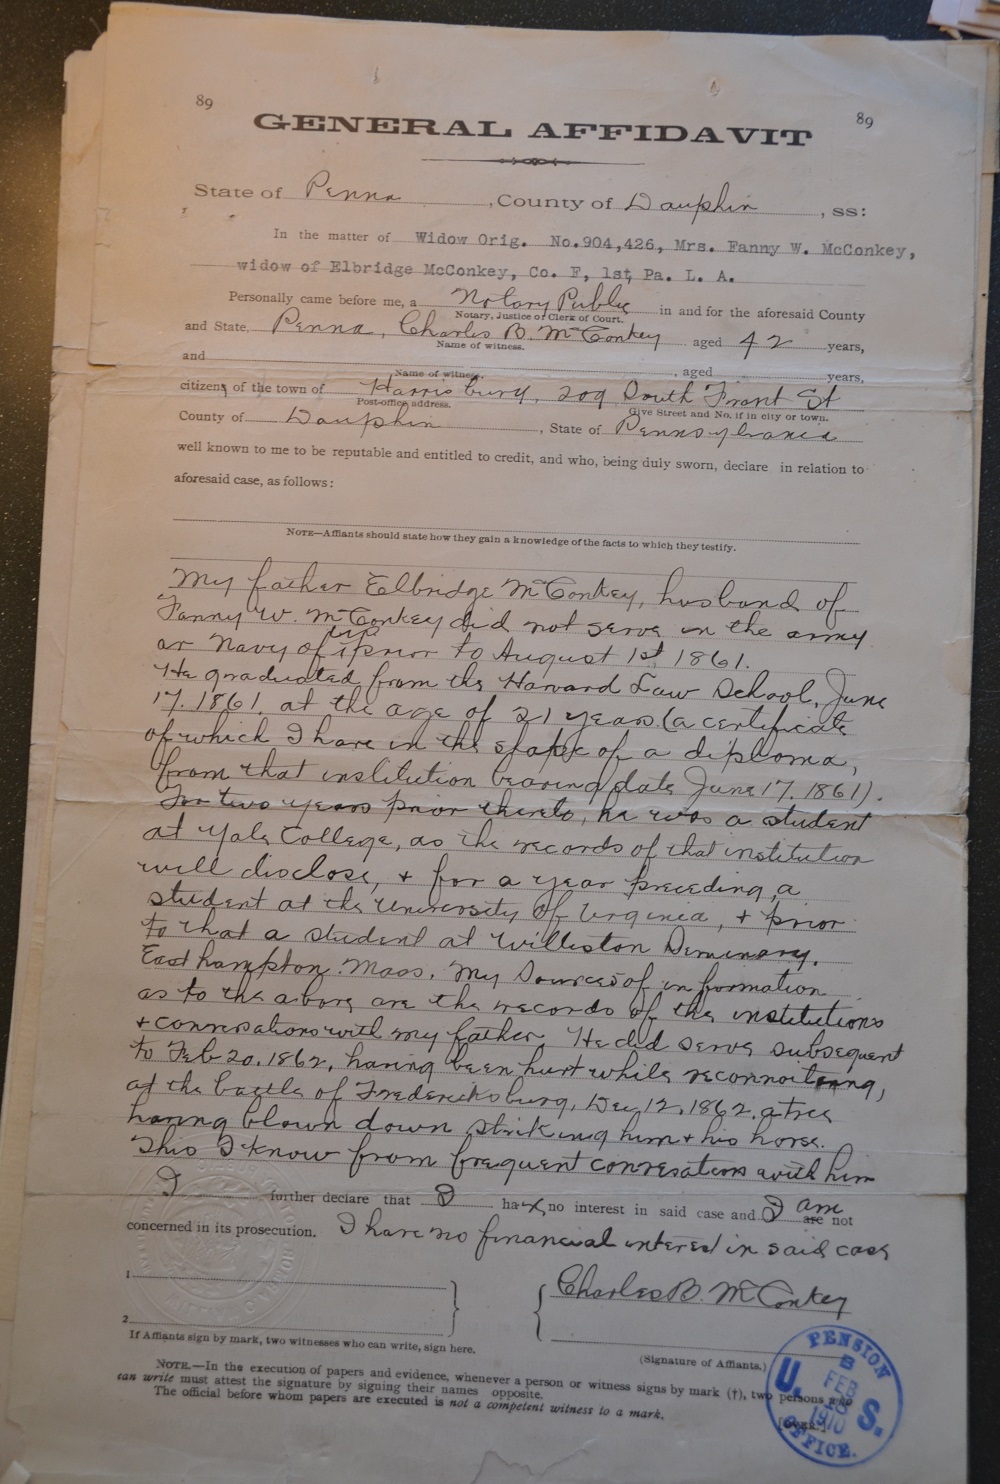 89 89
GENERAL AFFIDAVIT
State of Penna, County of Dauphin, ss:
In the matter of Widow Orig. No.904,426, Mrs. Fanny W. McConkey,
widow of Elbridge McConkey, Co. F, 1st Pa. L. A.
Personally came before me, a Notary Public in and for the aforesaid County
Notary, Justice or Clerk of Court.
and State, Penna, Charles B. McConkey aged 42 years,
Name of witness.
and , aged years,
Name of witness.
citizens of the town of Harrisburg, 209 South Front St
Post-office address. Give Street and No. if in city or town.
County of Dauphin, State of Pennsylvania
well known to me to be reputable and entitled to credit, and who, being duly sworn, declare in relation to
aforesaid case, as follows:
NOTE—Affiants should state how they gain a knowledge of the facts to which they testify.
My father Elbridge McConkey, husband of
Fanny W. McConkey did not serve in the army
or Navy of prior to August 1st 1861.
He graduated from the Harvard Law School, June
17. 1861. at the age of 21 years (a certificate
of which I have in the shape of a diploma,
from that institution bearing date June 17. 1861).
For two years prior thereto, he was a student
at Yale College, as the records of that institution
will disclose, + for a year preceding, a
student at the University of Virginia, + prior
to that a student at Williston Seminary.
East hampton. Mass. My Sources of information
as to the above are the records of the institutions
+ conversations with my father. He did serve subsequent
to Feb 20. 1862, having been hurt while reconnoitering,
at the battle of Fredericksburg, Dec. 12. 1862, a tree
having blown down striking him + his horse.
This I know from frequent conversations with him
I further declare that I have no interest in said case and I am are not
concerned in its prosecution. I have no financial interest in said case
1
Charles B. McConkey
2
If Affiants sign by mark, two witnesses who can write, sign here.
(Signature of Affiants.)
NOTE.—In the execution of papers and evidence, whenever a person or witness signs by mark (†), two persons who
can write must attest the signature by signing their names opposite.
The official before whom papers are executed is not a competent witness to a mark.
[OVER.]
PENSION
B
U. FEB S.
1910
OFFICE.